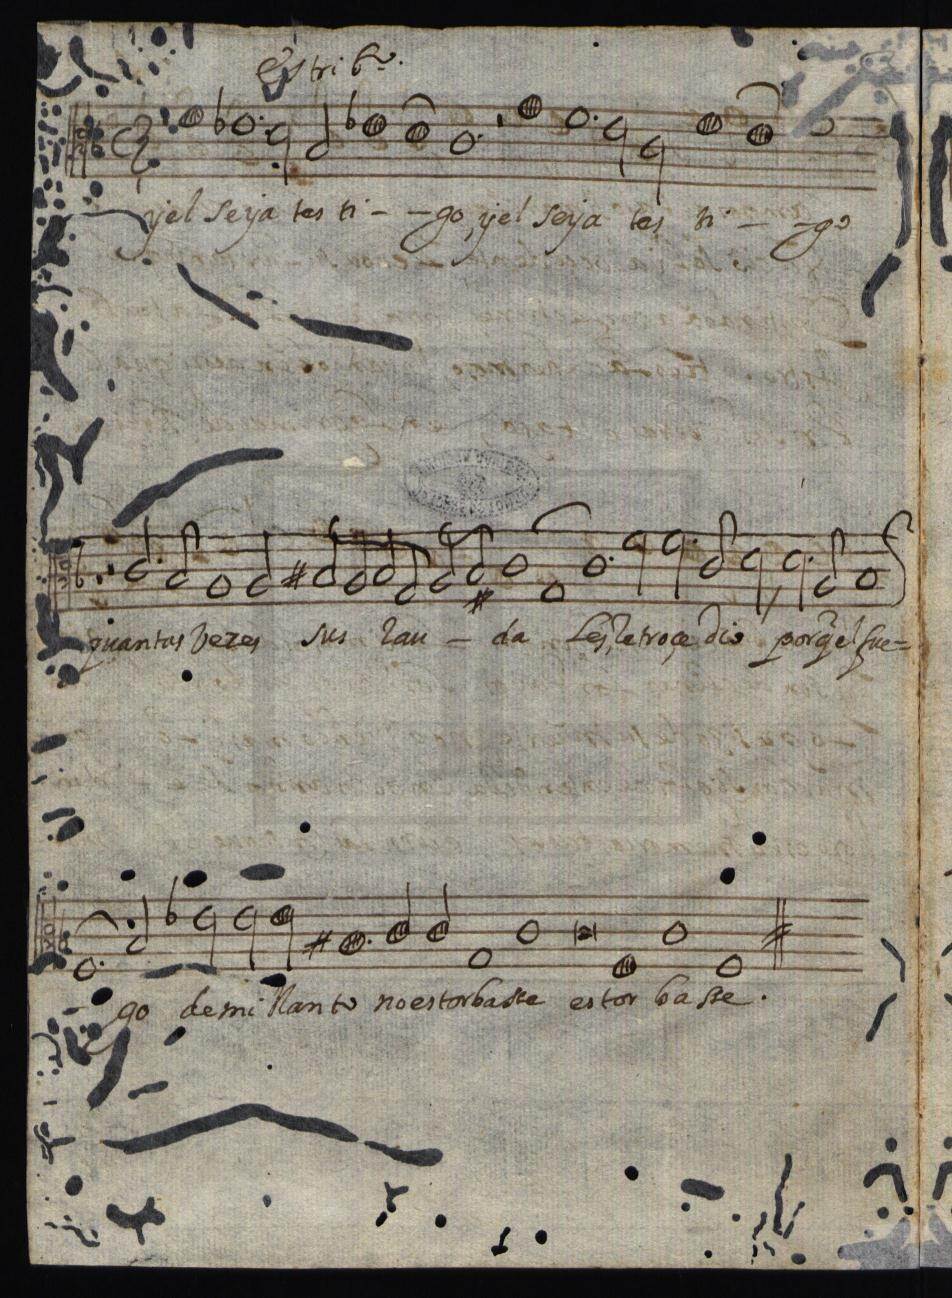 estribo.
yel seya tes ti - - go, yel seya tes ti - - go
quantas vezes sus rau - da les, retroçe dio porq̃ el fue=
go de mi llanto no estorbasse estor basse.